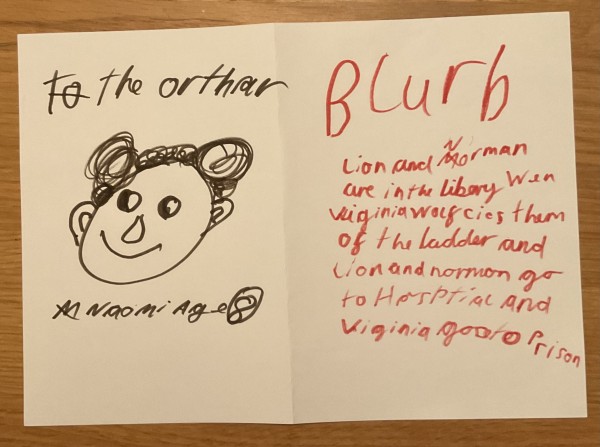 to the orthar
Naomi Age 8
Blurb
Lion and Norman
are in the libery Wen
Virginia wolf cics them
of the ladder and
Lion and normon go
to Hosptial and
Virginia goes to Prison